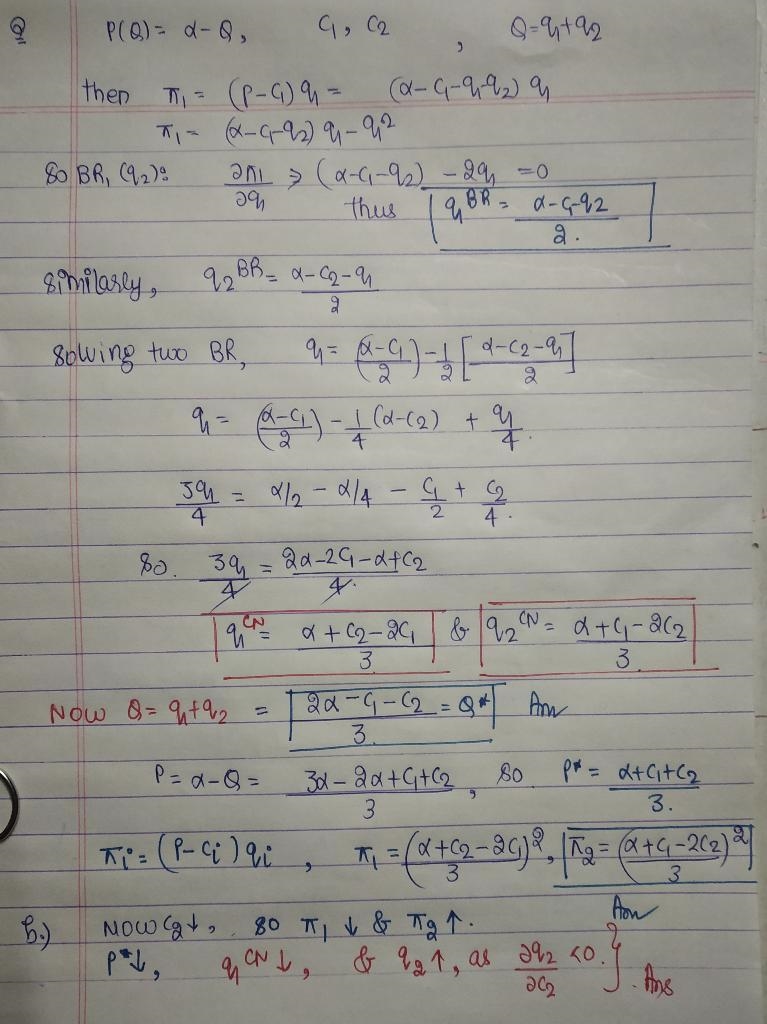 Q P(Q) = α - Q, C1, C2, Q = q1 + q2
then π1 = (P - C1) q1 = (α - C1 - q1 - q2) q1
π1 = (α - C1 - q2) q1 - q1²
So BR1 (q2): ∂π1/∂q1 ⇒ (α - C1 - q2) - 2q1 = 0
thus q1^BR = (α - C1 - q2)/2.
similarly, q2^BR = (α - C2 - q1)/2
Solving two BR, q1 = ((α - C1)/2) - 1/2 [(α - C2 - q1)/2]
q1 = ((α - C1)/2) - 1/4 (α - C2) + q1/4.
3q1/4 = α/2 - α/4 - C1/2 + C2/4.
So. 3q1/4 = (2α - 2C1 - α + C2)/4.
q1^CN = (α + C2 - 2C1)/3 & q2^CN = (α + C1 - 2C2)/3
Now Q = q1 + q2 = (2α - C1 - C2)/3 = Q* Ans
P = α - Q = (3α - 2α + C1 + C2)/3, so P* = (α + C1 + C2)/3.
πi = (P - Ci) qi, π1 = ((α + C2 - 2C1)/3)², π2 = ((α + C1 - 2C2)/3)²
Ans
b.) Now C2↓, so π1 ↓ & π2 ↑.
P*↓, q1^CN ↓, & q2 ↑, as ∂q2/∂C2 < 0. } . Ans